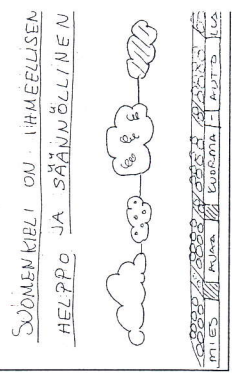 SUOMENKIELI ON IHMEELLISEN
HELPPO JA SÄÄNNÖLLINEN
MIES AVAA KUORMA - AUTO